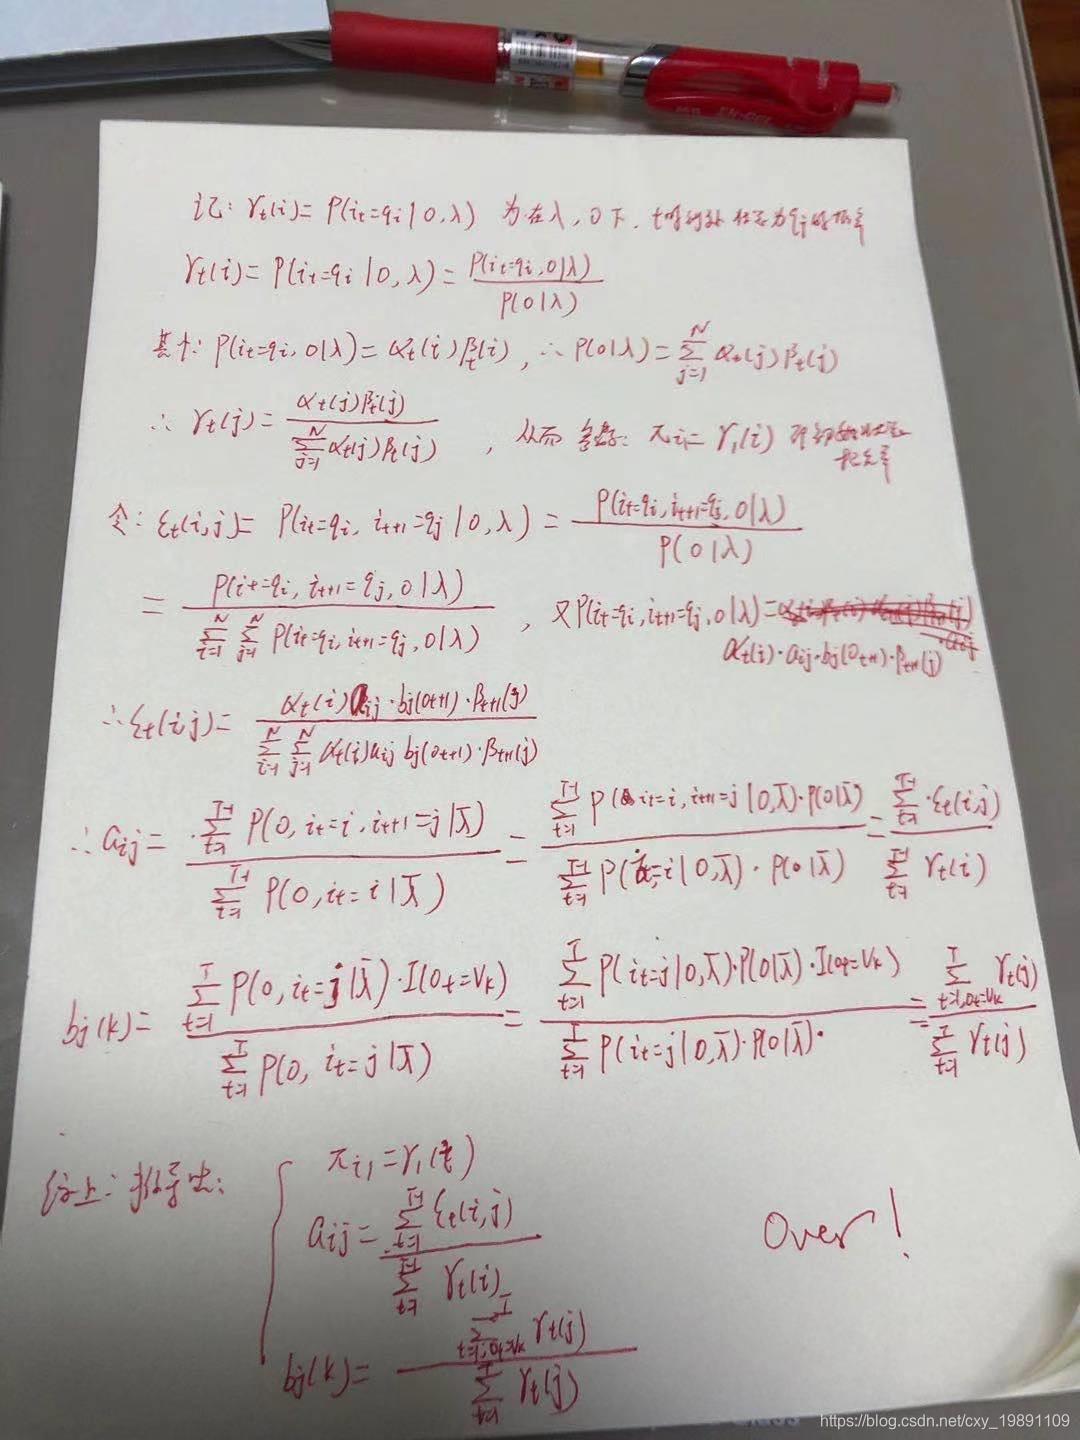 记: γt(i)= P(it=qi | O,λ) 为在λ, O下, t时刻处 状态为qi的概率
γt(i)= P(it=qi | O,λ)= P(it=qi,O|λ) / P(O|λ)
其中: P(it=qi, O|λ)= αt(i)βt(i), ∴ P(O|λ)= ∑_{j=1}^{N} αt(j)βt(j)
∴ γt(j)= αt(j)βt(j) / ∑_{j=1}^{N} αt(j)βt(j) , 从而 参数: πi= γ1(i)
概率
令: ξt(i,j)= P(it=qi, it+1=qj | O,λ) = P(it=qi, it+1=qj, O|λ) / P(O|λ)
= P(it=qi, it+1=qj, O|λ) / ∑_{i=1}^{N} ∑_{j=1}^{N} P(it=qi, it+1=qj, O|λ) , 又P(it=qi, it+1=qj, O|λ)=
αt(i)·aij·bj(Ot+1)·βt+1(j)
∴ξt(i j)= αt(i) aij·bj(Ot+1)·βt+1(j) / ∑_{i=1}^{N} ∑_{j=1}^{N} αt(i)aij bj(Ot+1)·βt+1(j)
∴ aij= ∑_{t=1}^{T-1} P(O, it=i, it+1=j|λ̄) / ∑_{t=1}^{T-1} P(O, it=i|λ̄) = ∑_{t=1}^{T-1} P(it=i, it+1=j|O,λ̄)·P(O|λ̄) / ∑_{t=1}^{T-1} P(it=i|O,λ̄)·P(O|λ̄) = ∑_{t=1}^{T-1}·ξt(i,j) / ∑_{t=1}^{T-1} γt(i)
bj(k)= ∑_{t=1}^{T} P(O, it=j|λ̄)·I(Ot=Vk) / ∑_{t=1}^{T} P(O, it=j|λ̄) = ∑_{t=1}^{T} P(it=j|O,λ̄)·P(O|λ̄)·I(Ot=Vk) / ∑_{t=1}^{T} P(it=j|O,λ̄)·P(O|λ̄)· = ∑_{t=1,Ot=Vk}^{T} γt(j) / ∑_{t=1}^{T} γt(j)
综上: 推导出:
πi1=γ1(i)
aij= ∑_{t=1}^{T-1} ξt(i,j) / ∑_{t=1}^{T-1} γt(i)
Over!
bj(k)= ∑_{t=1,Ot=Vk}^{T} γt(j) / ∑_{t=1}^{T} γt(j)
https://blog.csdn.net/cxy_19891109